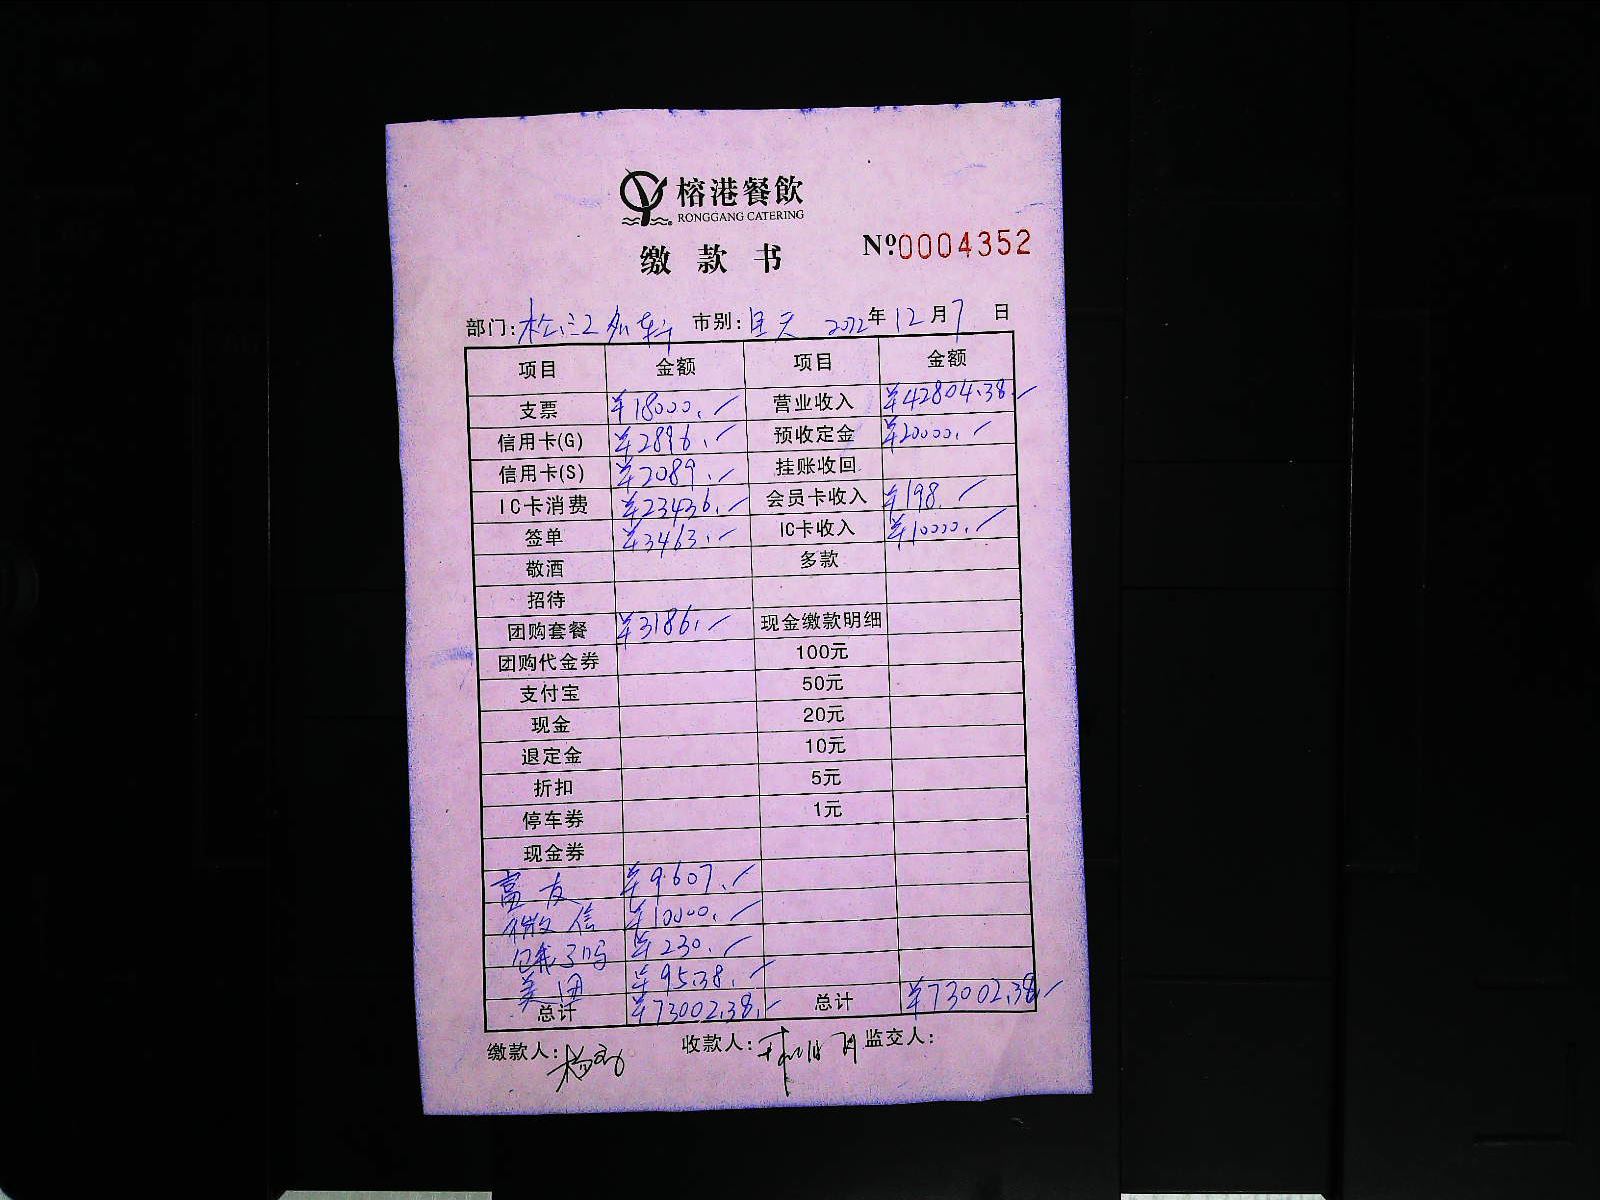 榕港餐飲
RONGGANG CATERING
缴款书 №0004352
部门: 松江 市别: 全天 2022年12月7日
项目 金额 项目 金额
支票 ¥18000. 营业收入 ¥42804.38
信用卡(G) ¥2896. 预收定金 ¥20000.
信用卡(S) ¥2089. 挂账收回
IC卡消费 ¥23436. 会员卡收入 ¥198.
签单 ¥3463. IC卡收入 ¥10000.
敬酒 多款
招待
团购套餐 ¥3186. 现金缴款明细
团购代金券 100元
支付宝 50元
现金 20元
退定金 10元
折扣 5元
停车券 1元
现金券
富友 ¥9607.
微信 ¥10000.
饿了吗 ¥230.
美团 ¥95.38.
总计 ¥73002.38. 总计 ¥73002.38
缴款人: 收款人: 监交人: